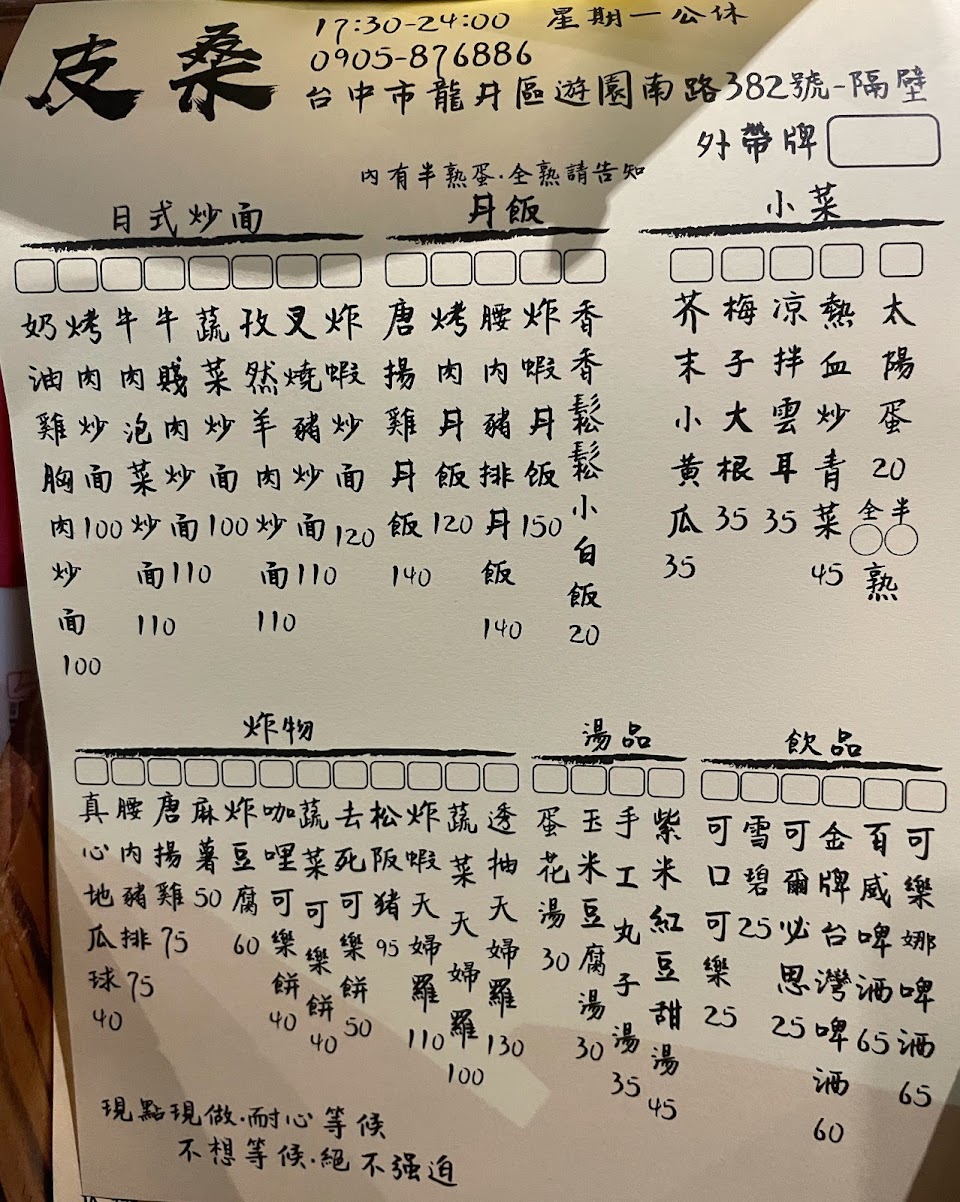 皮桑
17:30-24:00 星期一公休
0905-876886
台中市龍井區遊園南路382號-隔壁
外帶牌
內有半熟蛋.全熟請告知
日式炒面
奶油雞胸肉炒面100
烤肉炒面100
牛肉泡菜炒面110
牛賤肉炒面110
蔬菜炒面100
孜然羊肉炒面110
叉燒豬炒面110
炸蝦炒面120
丼飯
唐揚雞丼飯140
烤肉丼飯120
腰內豬排丼飯140
炸蝦丼飯150
香香鬆鬆小白飯20
小菜
芥末小黃瓜35
梅子大根35
凉拌雲耳35
熱血炒青菜45
太陽蛋20
全半
熟
炸物
真心地瓜球40
腰內豬排75
唐揚雞75
麻薯50
炸豆腐60
咖哩可樂餅40
蔬菜可樂餅40
去死可樂餅50
松阪猪95
炸蝦天婦羅110
蔬菜天婦羅100
透抽天婦羅130
湯品
蛋花湯30
玉米豆腐湯30
手工丸子湯35
紫米紅豆甜湯45
飲品
可口可樂25
雪碧25
可爾必思25
金牌台灣啤酒60
百威啤酒65
可樂娜啤酒65
現點現做.耐心等候
不想等候.絕不强迫